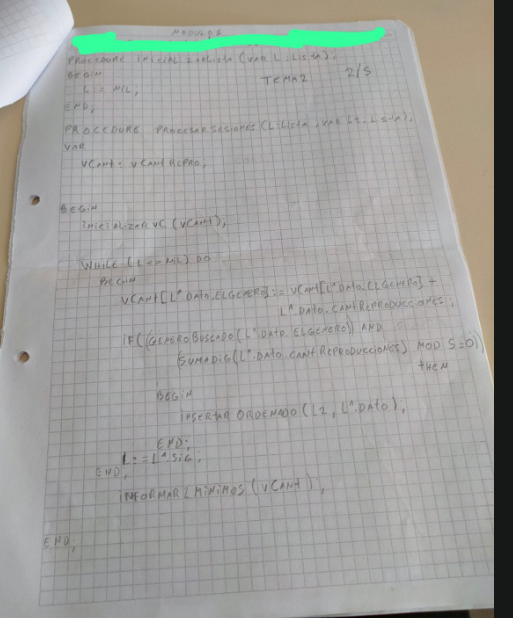 MODULOS
PROCEDURE INICIALIZARLISTA (VAR L:LISTA);
BEGIN
TEMA2 2/5
L:= NIL;
END;
PROCEDURE PROCESARSESIONES (L:LISTA, VAR L2:LISTA);
VAR
VCANT: VCANTREPRO;
BEGIN
INICIALIZARVC (VCANT);
WHILE (L <> NIL) DO
BEGIN
VCANT[L^.DATO.ELGENERO]:= VCANT[L^.DATO.ELGENERO] +
L^.DATO.CANTREPRODUCCIONES;
IF((GENEROBUSCADO(L^.DATO.ELGENERO)) AND
(SUMADIG(L^.DATO.CANTREPRODUCCIONES) MOD 5=0))
THEN
BEGIN
INSERTAR ORDENADO (L2, L^.DATO);
END;
L:=L^.SIG;
END;
INFORMAR2MINIMOS (VCANT);
END;